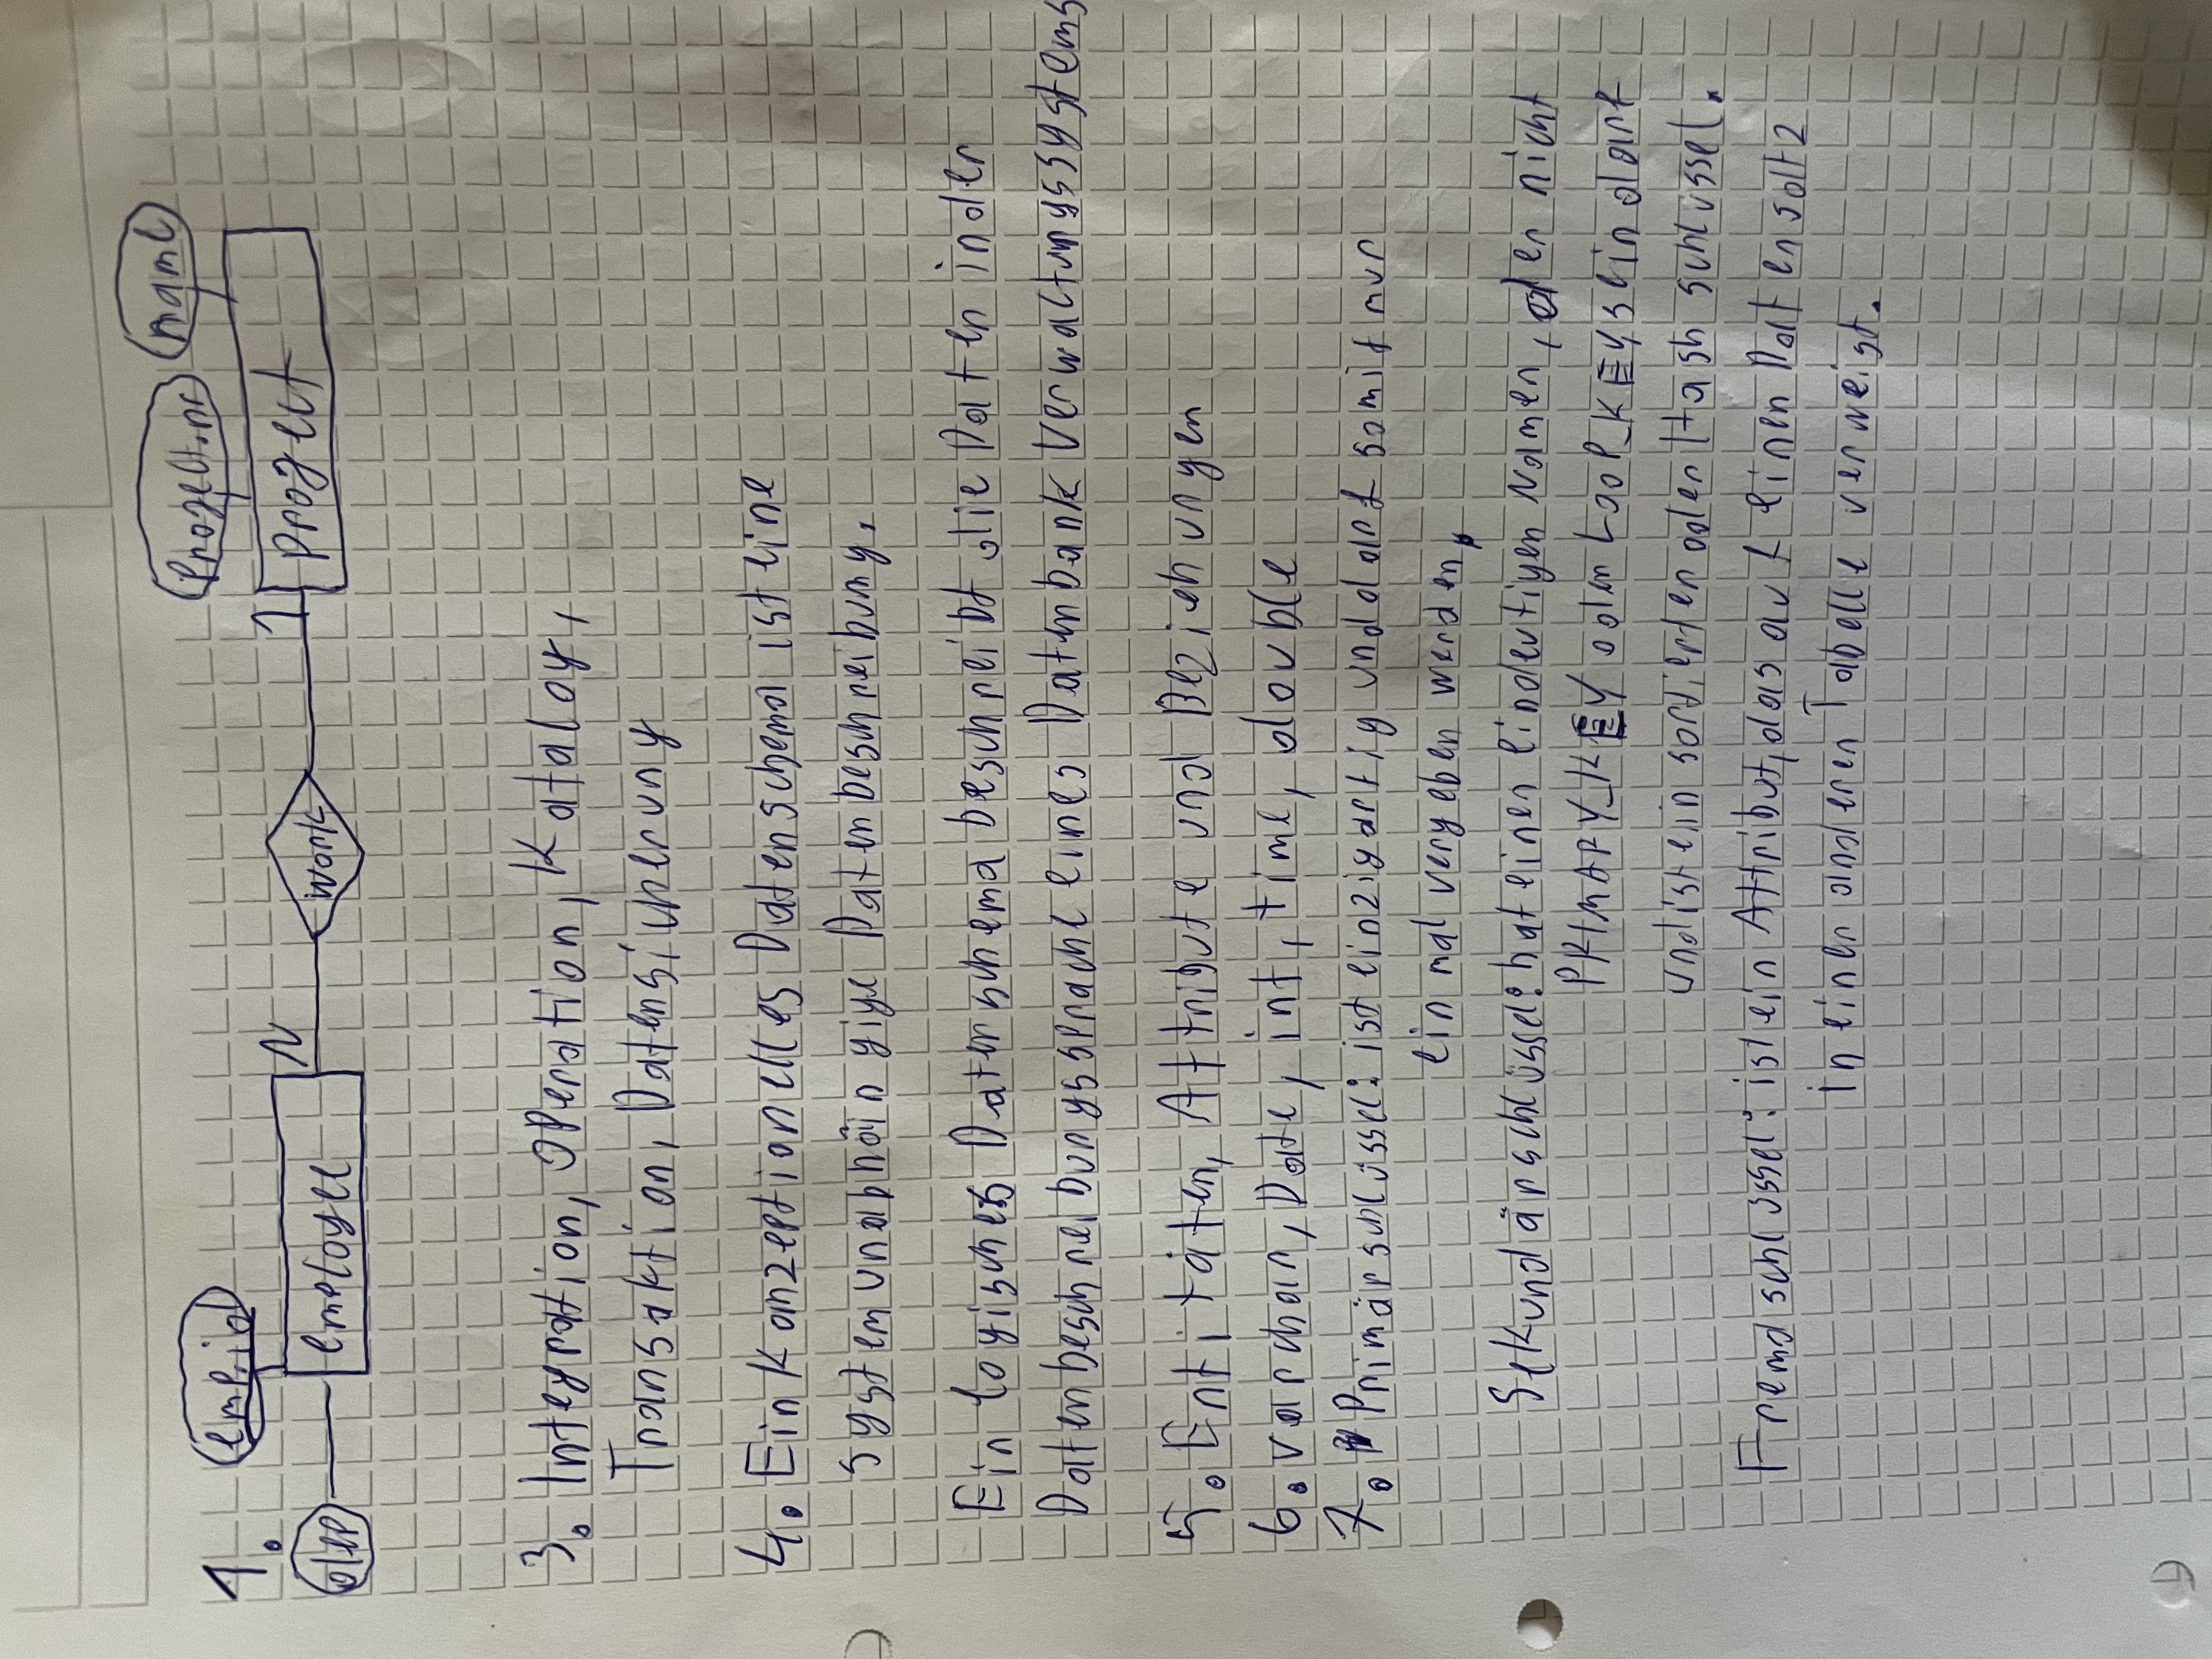 1.
emp.id
Project.nr
name
dep
employee
N
work
1
project
3. Integration, Operation, Katalog,
Transaktion, Datensicherung
4. Ein Konzeptionelles Datenschema ist eine
systemunabhängige Datenbeschreibung.
Ein logisches Datenschema beschreibt die Daten in der
Datenbeschreibungssprache eines Datenbank Verwaltungssystems
5. Entitäten, Attribute und Beziehungen
6. varchar, Date, int, time, double
7. Primärschlüssel: ist einzigartig und darf somit nur
ein mal vergeben werden.
Sekundärschlüssel: hat einen eindeutigen Namen, der nicht
PRIMARY_KEY oder LOOP_KEY sein darf
und ist ein sortierter oder Hash schlüssel.
Fremdschlüssel: ist ein Attribut, das auf einen Datensatz
in einer anderen Tabelle verweist.